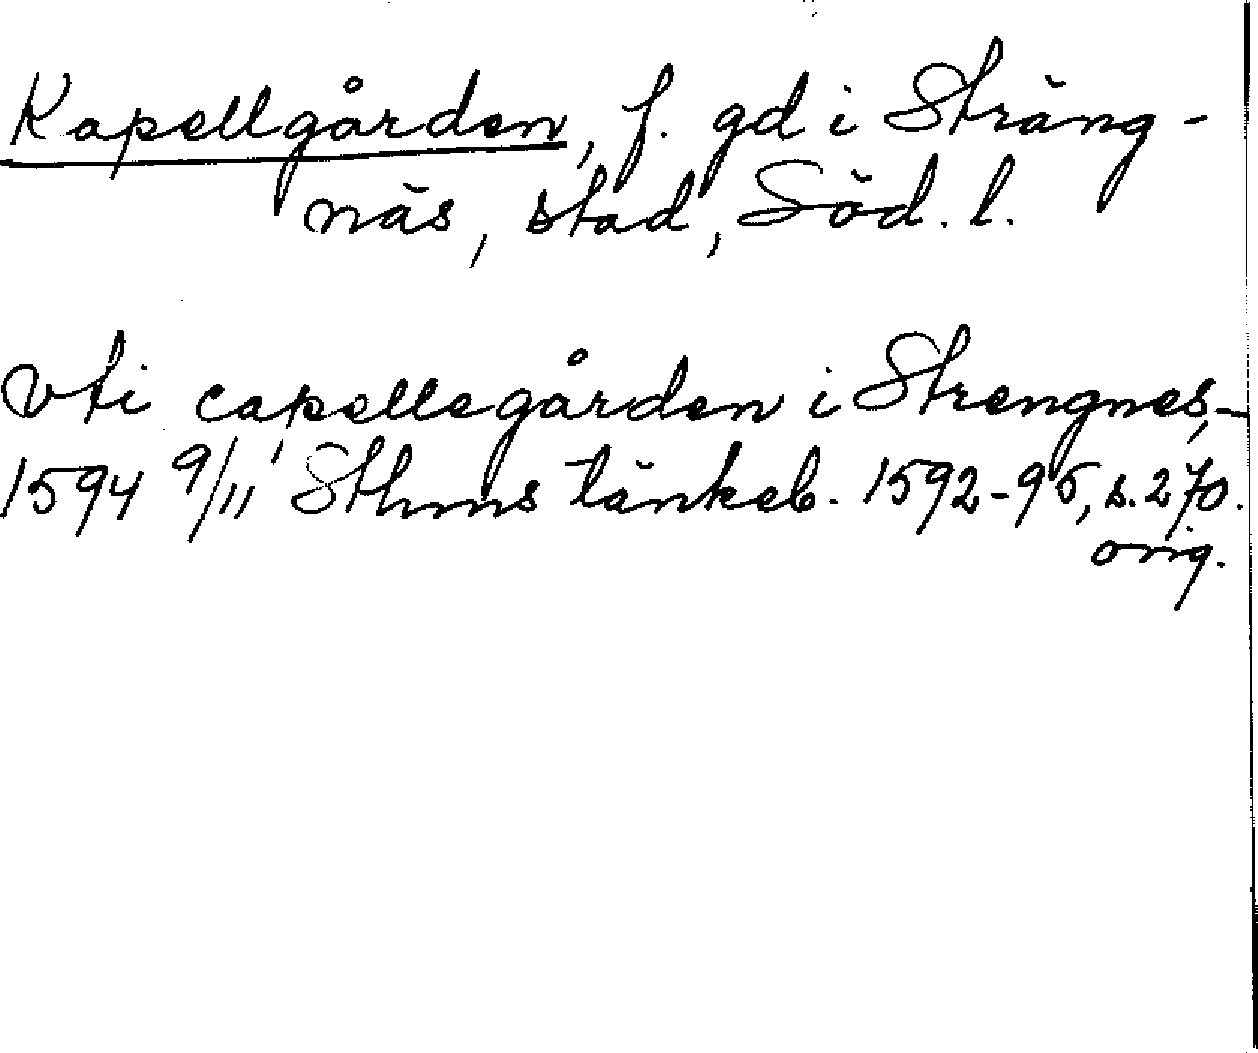 Kapellgården, f. gd i Sträng-
näs, stad, Söd. l.
vti capellegården i Strengnes,
1594 9/11 Sthms tänkeb. 1592-95, s. 270.
orig.